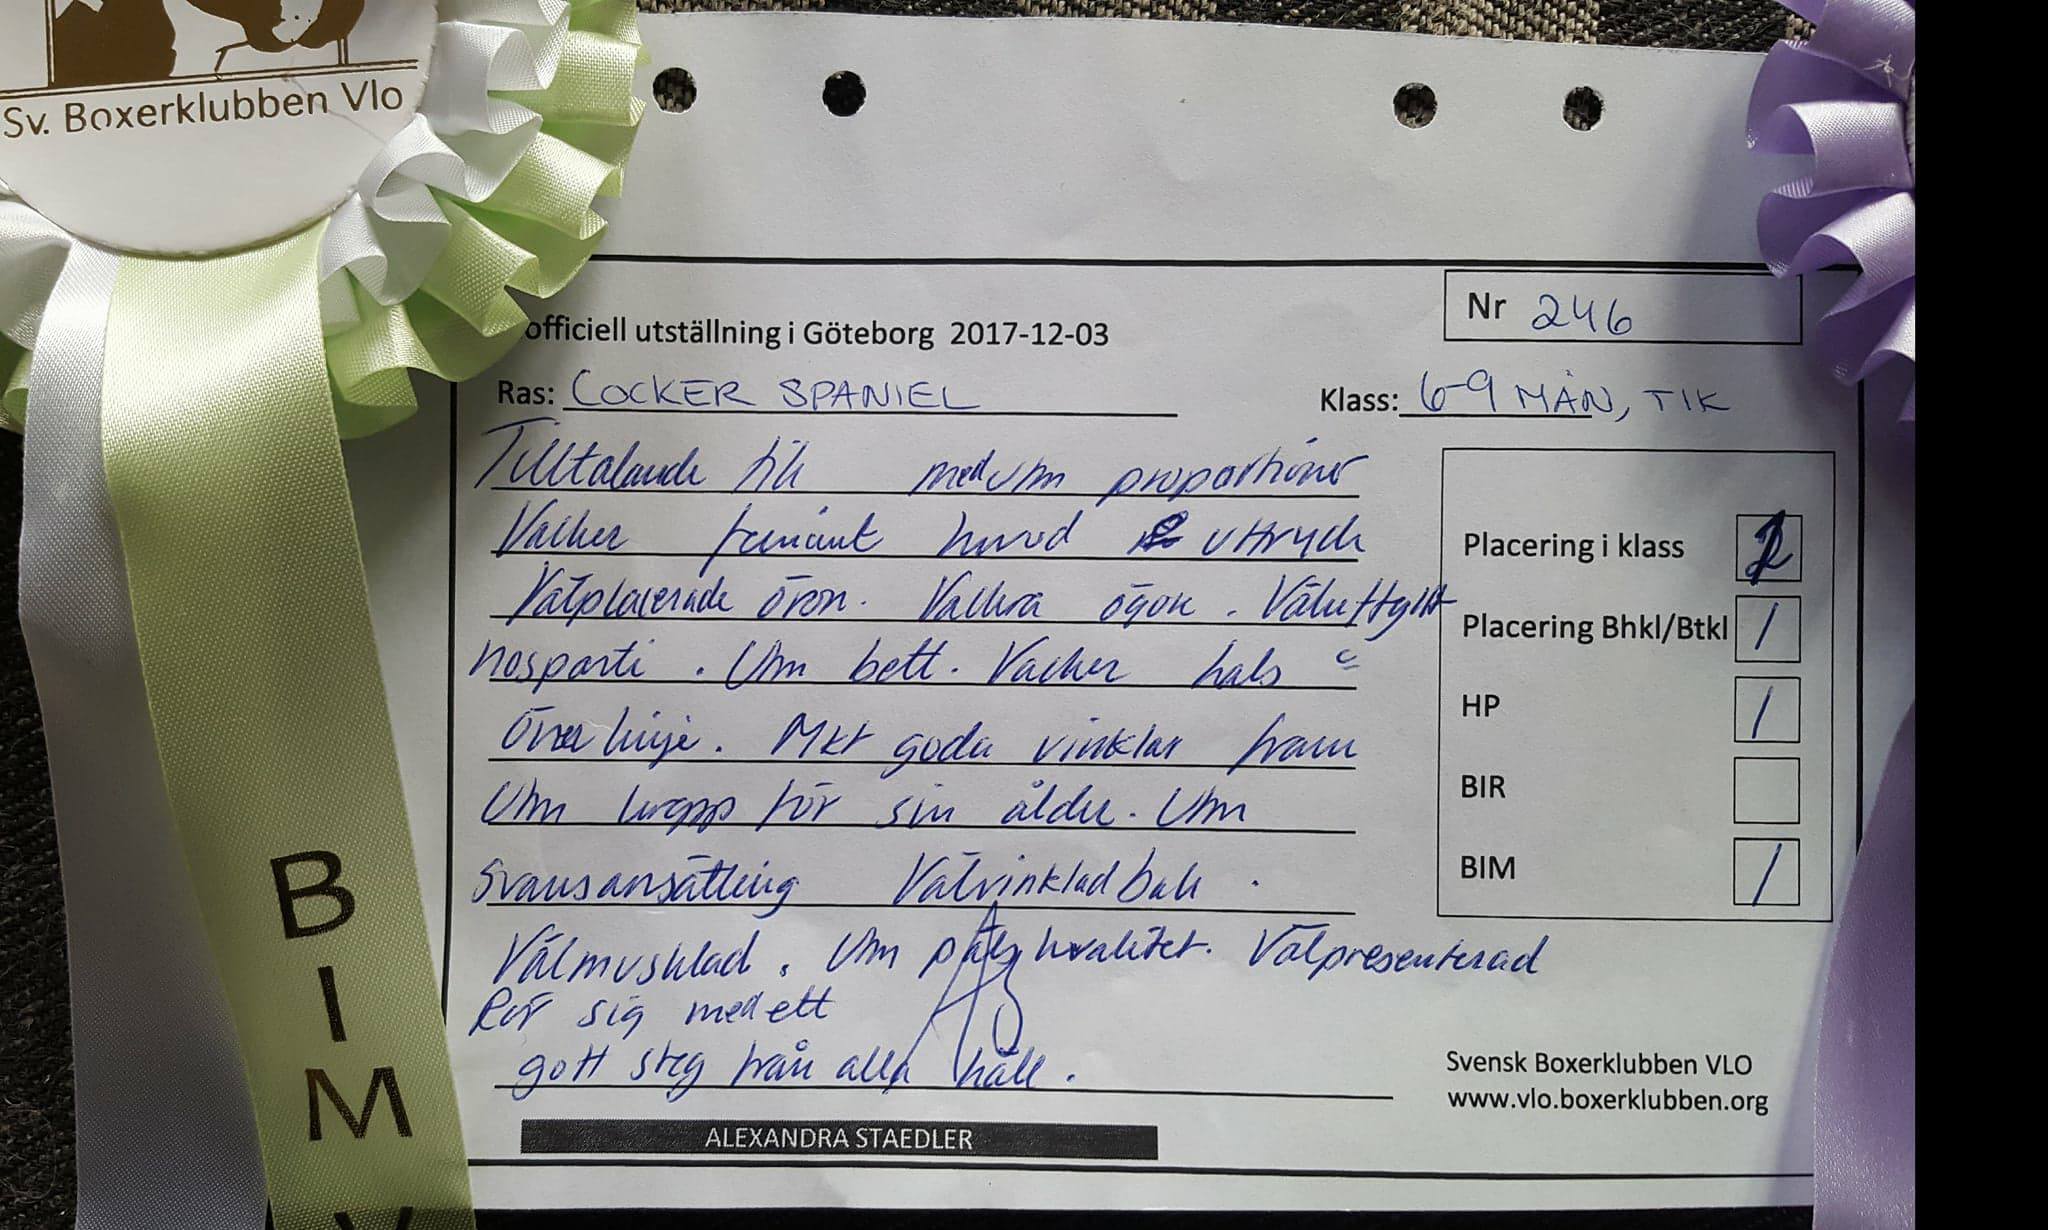 Sv. Boxerklubben Vlo
officiell utställning i Göteborg 2017-12-03
Nr 246
Ras: COCKER SPANIEL
Klass: 6-9 MÅN, TIK
Tilltalande tik med utm proportioner
Vacker feminint huvud & uttryck
Välplacerade öron. Vackra ögon. Väl utfyllt
nosparti. Utm bett. Vacker hals &
överlinje. Mkt goda vinklar fram
Utm kropp för sin ålder. Utm
svansansättning Välvinklad bak.
Välmusklad. Utm pälskvalitet. Välpresenterad
Rör sig med ett
gott steg från alla håll.
Placering i klass
Placering Bhkl/Btkl /
HP /
BIR
BIM /
Svensk Boxerklubben VLO
www.vlo.boxerklubben.org
ALEXANDRA STAEDLER
BIM